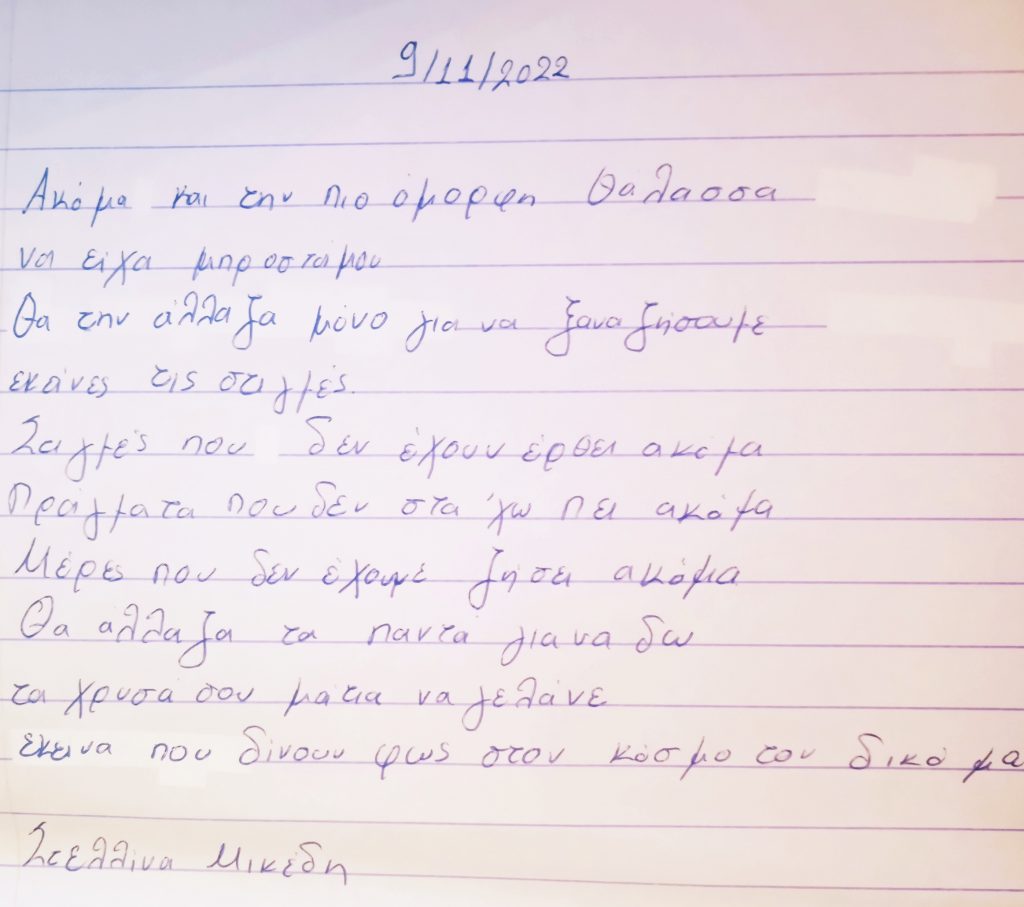 9/11/2022
Ακόμα και την πιο όμορφη θάλασσα
να είχα μπροστάμου
Θα την άλλαζα μόνο για να ξαναζήσουμε
εκείνες τις στιγμές.
Σαγμές που δεν έχουν έρθει ακόμα
Πράγματα που δεν στα 'χω πει ακόμα
Μέρες που δεν έχουμε ζήσει ακόμα
Θα αλλαζα τα παντα για να δω
τα χρυσά σου μάτια να γελάνε
εκεινα που δίνουν φως στον κόσμο τον δικό μα
Στελλινα Μικέδη